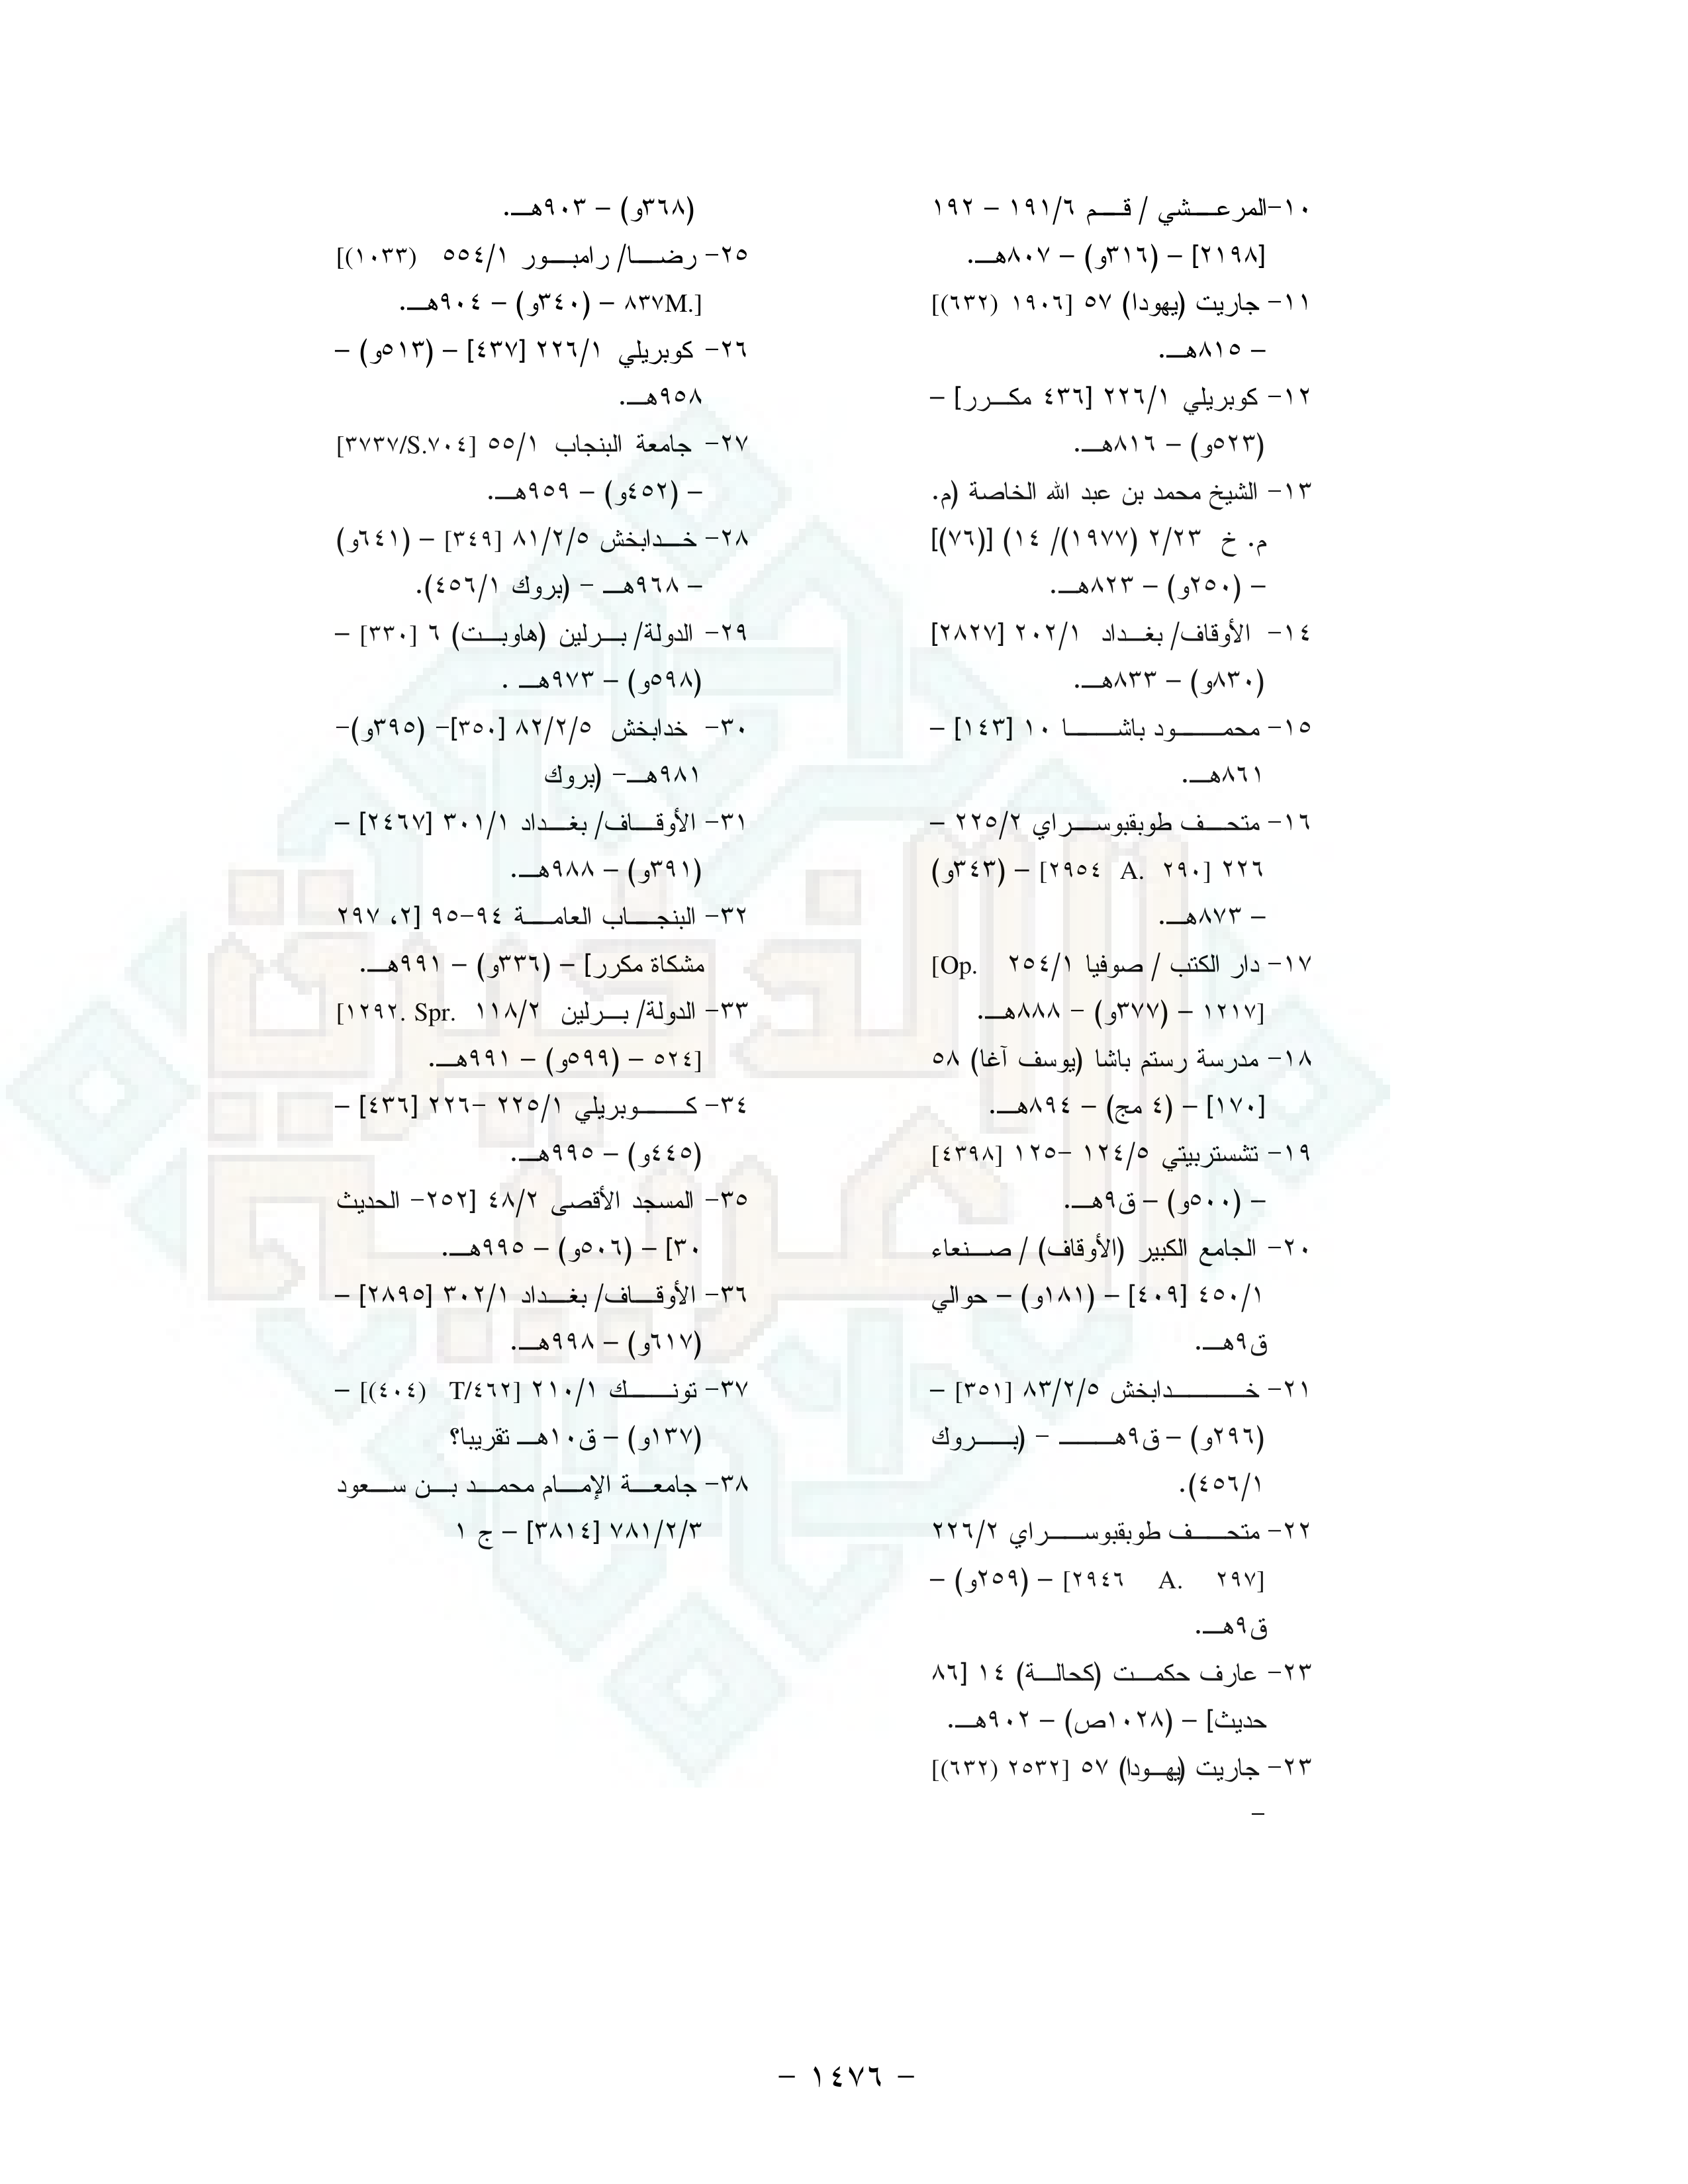 ١٠-المرعشي / قم ١٩١/٦ – ١٩٢
[٢١٩٨] – (٣١٦و) – ٨٠٧هـ.
١١- جاريت (يهودا) ٥٧ [١٩٠٦ (٦٣٢)]
– ٨١٥هـ.
١٢- كوبريلي ٢٢٦/١ [٤٣٦ مكرر] –
(٥٢٣و) – ٨١٦هـ.
١٣- الشيخ محمد بن عبد الله الخاصة (م.
م. خ ٢/٢٣ (١٩٧٧)/ ١٤) [(٧٦)]
– (٢٥٠و) – ٨٢٣هـ.
١٤- الأوقاف/ بغداد ٢٠٢/١ [٢٨٢٧]
(٨٣٠و) – ٨٣٣هـ.
١٥- محمود باشا ١٠ [١٤٣] –
٨٦١هـ.
١٦- متحف طوبقبوسراي ٢٢٥/٢ –
٢٢٦ [٢٩٠ .A ٢٩٥٤] – (٣٤٣و)
– ٨٧٣هـ.
١٧- دار الكتب / صوفيا ٢٥٤/١ [Op.
١٢١٧] – (٣٧٧و) – ٨٨٨هـ.
١٨- مدرسة رستم باشا (يوسف آغا) ٥٨
[١٧٠] – (٤ مج) – ٨٩٤هـ.
١٩- تشستربيتي ١٢٤/٥ -١٢٥ [٤٣٩٨]
– (٥٠٠و) – ق٩هـ.
٢٠- الجامع الكبير (الأوقاف) / صنعاء
٤٥٠/١ [٤٠٩] – (١٨١و) – حوالي
ق٩هـ.
٢١- خدابخش ٨٣/٢/٥ [٣٥١] –
(٢٩٦و) – ق٩هـ - (بروك
٤٥٦/١).
٢٢- متحف طوبقبوسراي ٢٢٦/٢
[٢٩٧ .A ٢٩٤٦] – (٢٥٩و) –
ق٩هـ.
٢٣- عارف حكمت (كحالة) ١٤ [٨٦
حديث] – (١٠٢٨ص) – ٩٠٢هـ.
٢٣- جاريت (يهودا) ٥٧ [٢٥٣٢ (٦٣٢)]
–
(٣٦٨و) – ٩٠٣هـ.
٢٥- رضا/ رامبور ٥٥٤/١ [(١٠٣٣)
٨٣٧M.] – (٣٤٠و) – ٩٠٤هـ.
٢٦- كوبريلي ٢٢٦/١ [٤٣٧] – (٥١٣و) –
٩٥٨هـ.
٢٧- جامعة البنجاب ٥٥/١ [٣٧٣٧/S.٧٠٤]
– (٤٥٢و) – ٩٥٩هـ.
٢٨- خدابخش ٨١/٢/٥ [٣٤٩] – (٦٤١و)
– ٩٦٨هـ - (بروك ٤٥٦/١).
٢٩- الدولة/ برلين (هاوبت) ٦ [٣٣٠] –
(٥٩٨و) – ٩٧٣هـ .
٣٠- خدابخش ٨٢/٢/٥ [٣٥٠]- (٣٩٥و)-
٩٨١هـ- (بروك
٣١- الأوقاف/ بغداد ٣٠١/١ [٢٤٦٧] –
(٣٩١و) – ٩٨٨هـ.
٣٢- البنجاب العامة ٩٤-٩٥ [٢، ٢٩٧
مشكاة مكرر] – (٣٣٦و) – ٩٩١هـ.
٣٣- الدولة/ برلين ١١٨/٢ [١٢٩٢. Spr.
٥٢٤] – (٥٩٩و) – ٩٩١هـ.
٣٤- كوبريلي ٢٢٥/١ -٢٢٦ [٤٣٦] –
(٤٤٥و) – ٩٩٥هـ.
٣٥- المسجد الأقصى ٤٨/٢ [٢٥٢- الحديث
٣٠] – (٥٠٦و) – ٩٩٥هـ.
٣٦- الأوقاف/ بغداد ٣٠٢/١ [٢٨٩٥] –
(٦١٧و) – ٩٩٨هـ.
٣٧- تونك ٢١٠/١ [T/٤٦٢ (٤٠٤)] –
(١٣٧و) – ق١٠هـ تقريبا؟
٣٨- جامعة الإمام محمد بن سعود
٧٨١/٢/٣ [٣٨١٤] – ج ١
– ١٤٧٦ –